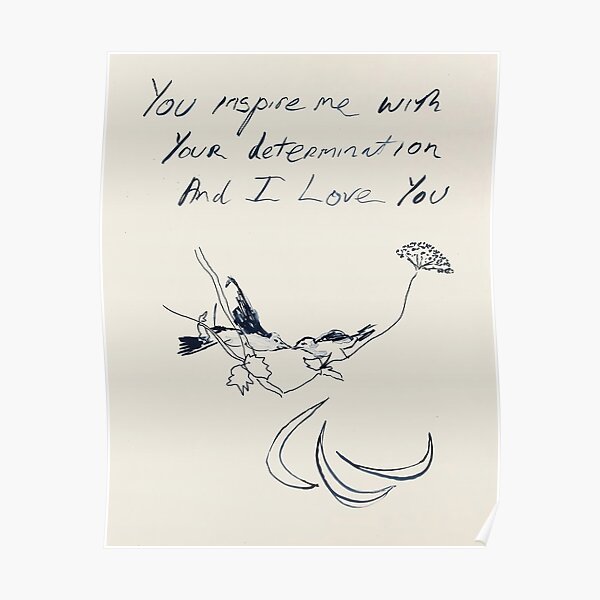 You inspire me with
Your determination
And I Love You